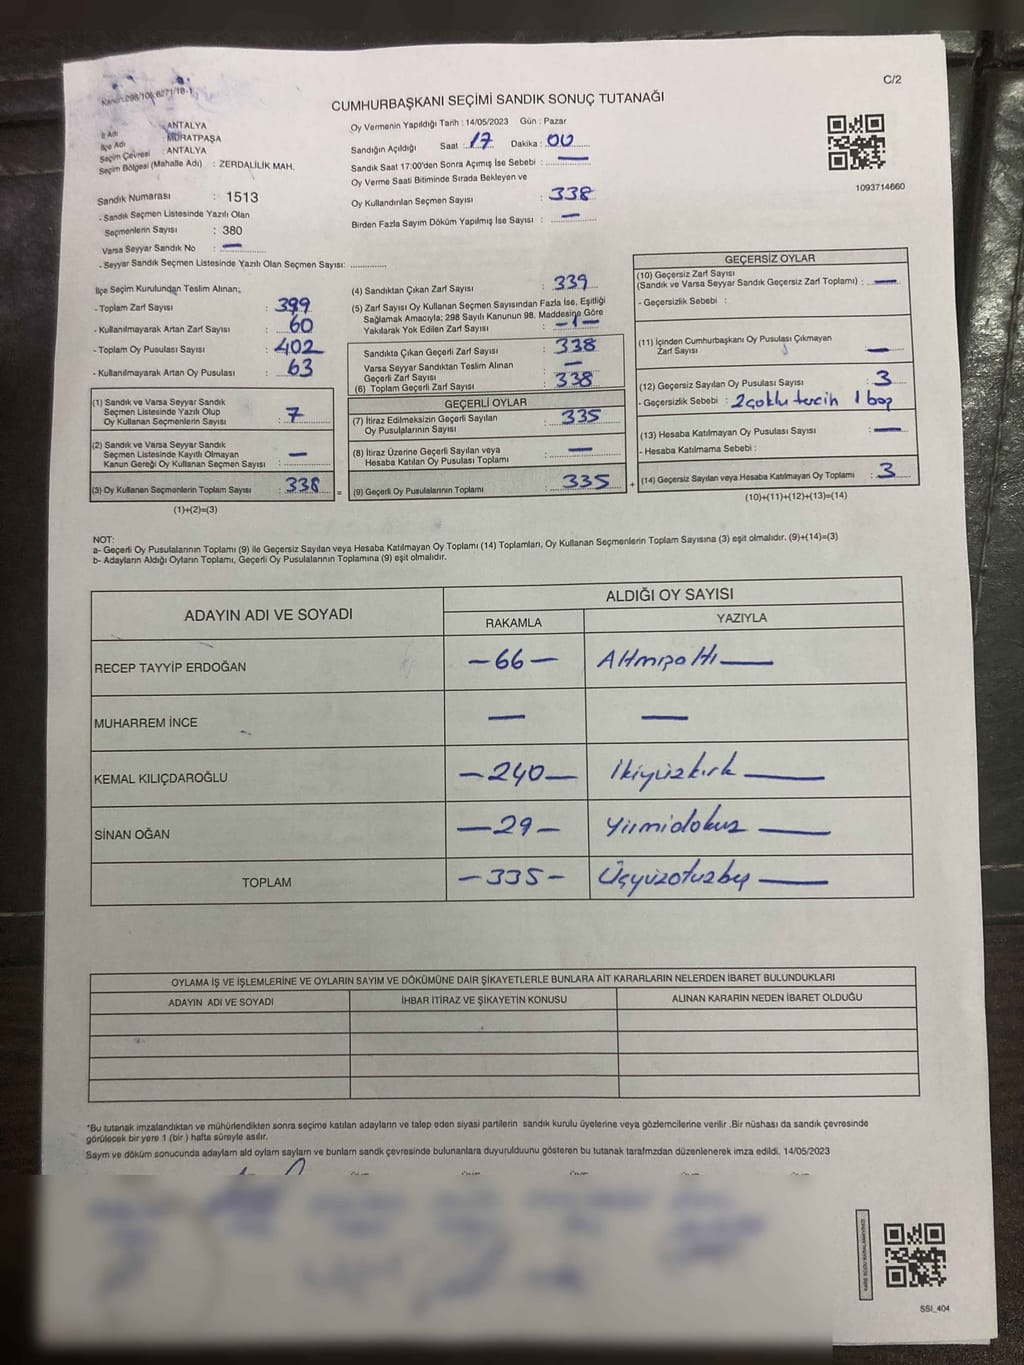 Kanun:298/106-6271/18-1
C/2
CUMHURBAŞKANI SEÇİMİ SANDIK SONUÇ TUTANAĞI
İl Adı : ANTALYA
İlçe Adı : MURATPAŞA
Seçim Çevresi : ANTALYA
Seçim Bölgesi (Mahalle Adı) : ZERDALİLİK MAH.
Sandık Numarası : 1513
- Sandık Seçmen Listesinde Yazılı Olan
Seçmenlerin Sayısı : 380
Varsa Seyyar Sandık No : —
- Seyyar Sandık Seçmen Listesinde Yazılı Olan Seçmen Sayısı: ............
Oy Vermenin Yapıldığı Tarih : 14/05/2023 Gün : Pazar
Sandığın Açıldığı Saat : 17 Dakika : 00
Sandık Saat 17:00'den Sonra Açımış İse Sebebi : —
Oy Verme Saati Bitiminde Sırada Bekleyen ve
Oy Kullandırılan Seçmen Sayısı : 338
Birden Fazla Sayım Döküm Yapılmış İse Sayısı : —
1093714660
İlçe Seçim Kurulundan Teslim Alınan;
- Toplam Zarf Sayısı : 399
- Kullanılmayarak Artan Zarf Sayısı : 60
- Toplam Oy Pusulası Sayısı : 402
- Kullanılmayarak Artan Oy Pusulası : 63
(1) Sandık ve Varsa Seyyar Sandık
Seçmen Listesinde Yazılı Olup
Oy Kullanan Seçmenlerin Sayısı : 7
(2) Sandık ve Varsa Seyyar Sandık
Seçmen Listesinde Kayıtlı Olmayan
Kanun Gereği Oy Kullanan Seçmen Sayısı : —
(3) Oy Kullanan Seçmenlerin Toplam Sayısı : 338
(1)+(2)=(3)
=
(4) Sandıktan Çıkan Zarf Sayısı : 339
(5) Zarf Sayısı Oy Kullanan Seçmen Sayısından Fazla İse, Eşitliği
Sağlamak Amacıyla; 298 Sayılı Kanunun 98. Maddesine Göre
Yakılarak Yok Edilen Zarf Sayısı : —1—
Sandıkta Çıkan Geçerli Zarf Sayısı : 338
Varsa Seyyar Sandıktan Teslim Alınan
Geçerli Zarf Sayısı : —
(6) Toplam Geçerli Zarf Sayısı : 338
GEÇERLİ OYLAR
(7) İtiraz Edilmeksizin Geçerli Sayılan
Oy Pusulalarının Sayısı : 335
(8) İtiraz Üzerine Geçerli Sayılan veya
Hesaba Katılan Oy Pusulası Toplamı : —
(9) Geçerli Oy Pusulalarının Toplamı : 335
+
GEÇERSİZ OYLAR
(10) Geçersiz Zarf Sayısı
(Sandık ve Varsa Seyyar Sandık Geçersiz Zarf Toplamı) : —
- Geçersizlik Sebebi :
(11) İçinden Cumhurbaşkanı Oy Pusulası Çıkmayan
Zarf Sayısı —
(12) Geçersiz Sayılan Oy Pusulası Sayısı : 3
- Geçersizlik Sebebi : 2 çoklu tercih 1 boş
(13) Hesaba Katılmayan Oy Pusulası Sayısı : —
- Hesaba Katılmama Sebebi :
(14) Geçersiz Sayılan veya Hesaba Katılmayan Oy Toplamı : 3
(10)+(11)+(12)+(13)=(14)
NOT:
a- Geçerli Oy Pusulalarının Toplamı (9) ile Geçersiz Sayılan veya Hesaba Katılmayan Oy Toplamı (14) Toplamları, Oy Kullanan Seçmenlerin Toplam Sayısına (3) eşit olmalıdır. (9)+(14)=(3)
b- Adayların Aldığı Oyların Toplamı, Geçerli Oy Pusulalarının Toplamına (9) eşit olmalıdır.
ADAYIN ADI VE SOYADI ALDIĞI OY SAYISI
RAKAMLA YAZIYLA
RECEP TAYYİP ERDOĞAN —66— Altmışaltı—
MUHARREM İNCE — —
KEMAL KILIÇDAROĞLU —240— İkiyüzkırk—
SİNAN OĞAN —29— Yirmidokuz—
TOPLAM —335— Üçyüzotuzbeş—
OYLAMA İŞ VE İŞLEMLERİNE VE OYLARIN SAYIM VE DÖKÜMÜNE DAİR ŞİKAYETLERLE BUNLARA AİT KARARLARIN NELERDEN İBARET BULUNDUKLARI
ADAYIN ADI VE SOYADI İHBAR İTİRAZ VE ŞİKAYETİN KONUSU ALINAN KARARIN NEDEN İBARET OLDUĞU
*Bu tutanak imzalandıktan ve mühürlendikten sonra seçime katılan adayların ve talep eden siyasi partilerin sandık kurulu üyelerine veya gözlemcilerine verilir .Bir nüshası da sandık çevresinde
görülecek bir yere 1 (bir ) hafta süreyle asılır.
Saym ve döküm sonucunda adaylarn ald oylarn saylarn ve bunlarn sandk çevresinde bulunanlara duyurulduunu gösteren bu tutanak tarafmzdan düzenlenerek imza edildi. 14/05/2023
SSI_404